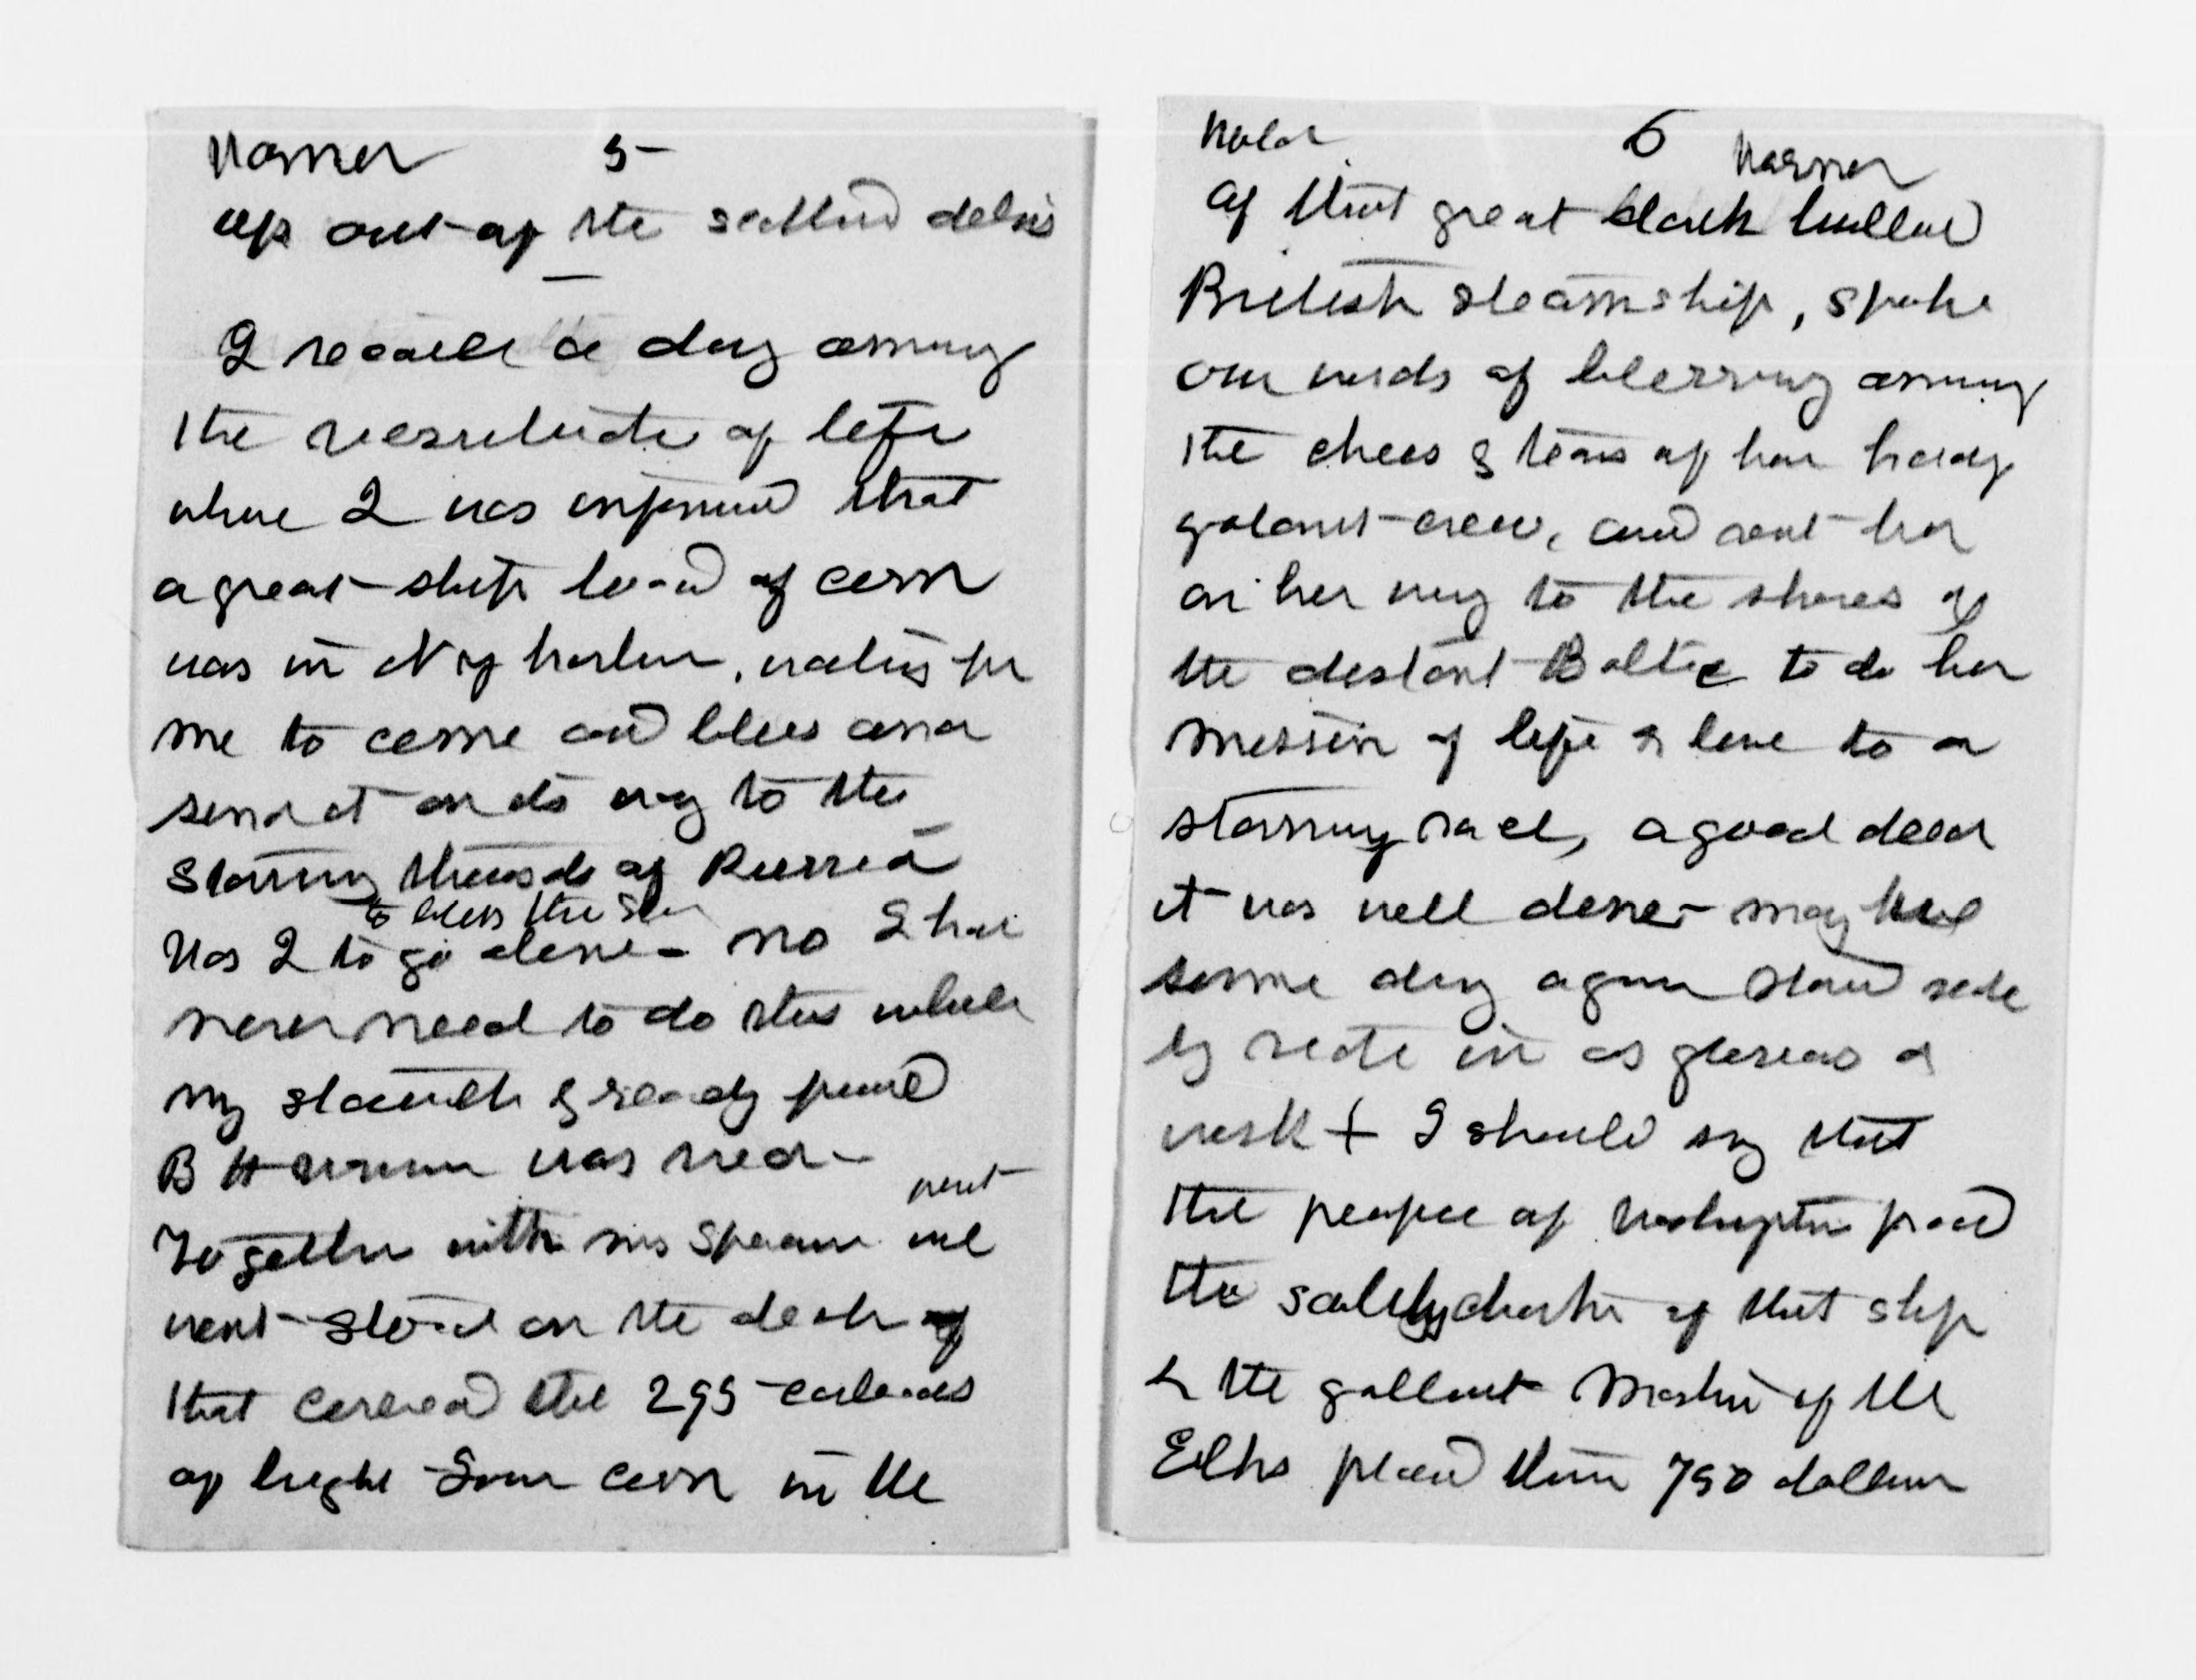 Warner 5-
up out of the scattered debris
I recall a day among
the vicissitudes of life
when I was informed that
a great ship load of corn
was in N Y harbor, waiting for
me to come and bless and
send it on its way to the
starving thousds of Russia
to bless the Sea
Was I to go alone - no I had
never need to do this while
my staunch & ready friend
B H Warner was near -
went
Together with Mrs Spencer we
went stood on the deck of
that carried the 295 carloads
of bright Iowa corn in the
hold 6 Warner
of that great black hulled
British steamship, spoke
our words of blessing among
the cheers & tears of her hardy
galant crew, and sent her
on her way to the shores of
the distant Baltic to do her
mission of life & love to a
starving race, a good deed
it was well done - may we
some day again stand side
by side in as glorious a
work + I should say that
the people of Washington paid
the charter of that ship
& the gallant Master of the
Elks placed there 750 dollars